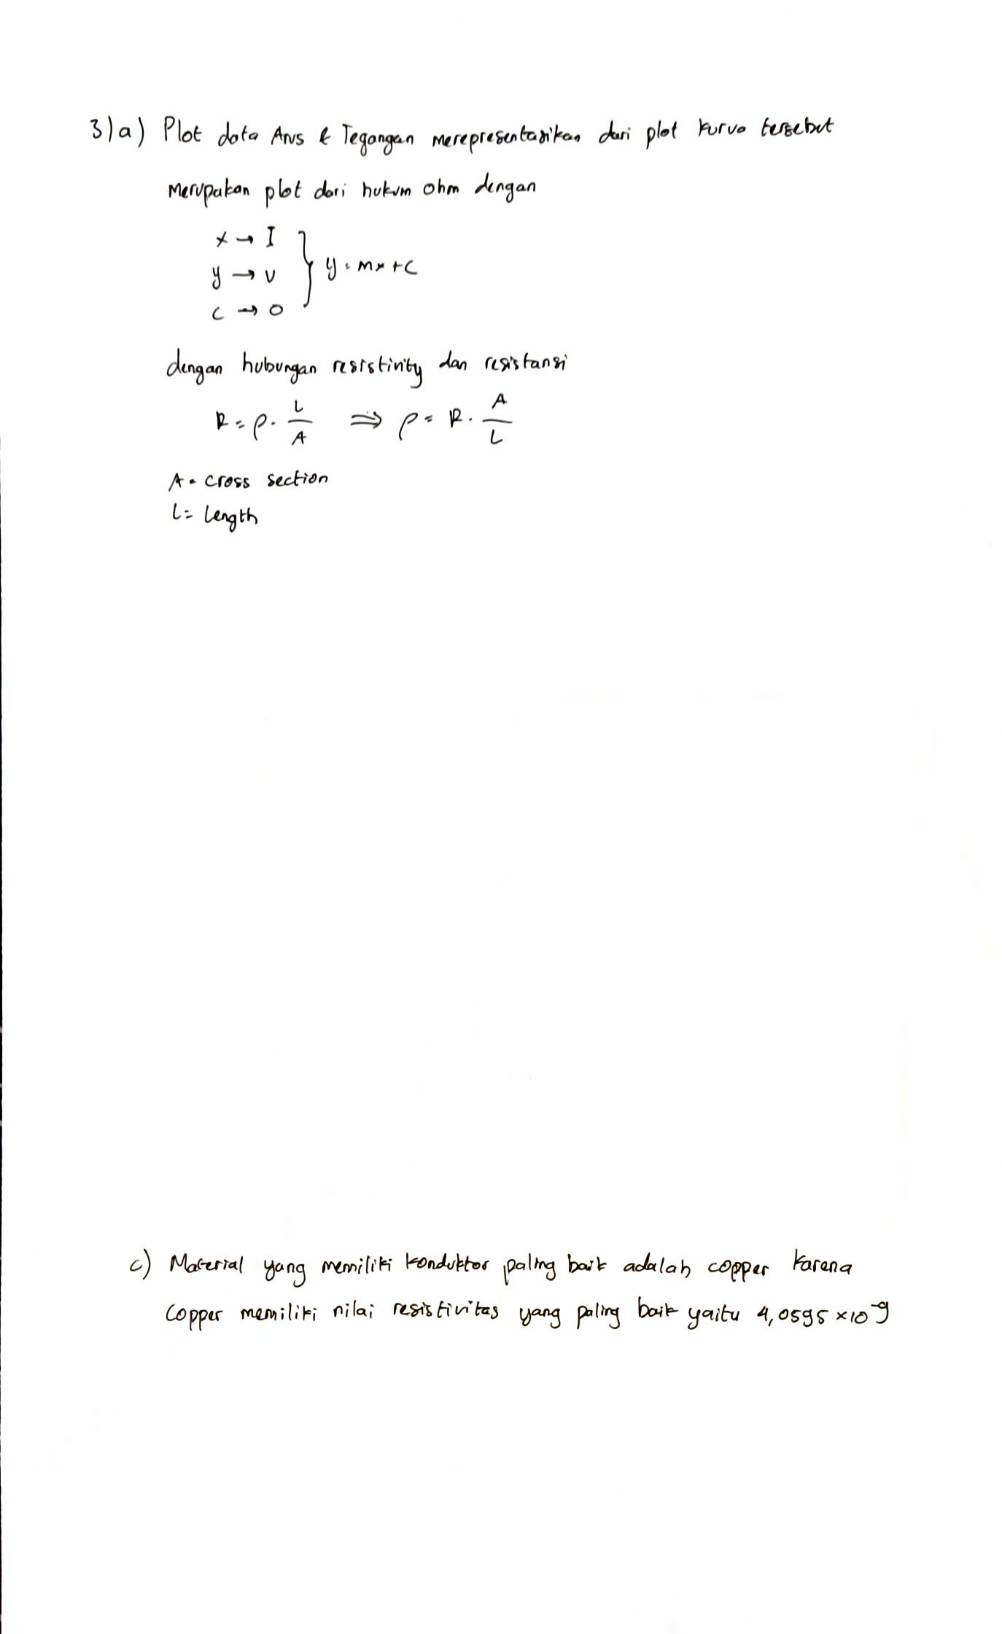 3) a) Plot data Arus & Tegangan merepresentasikan dari plot kurva tersebut
Merupakan plot dari hukum ohm dengan
x → I
y → v } y = mx + c
c → 0
dengan hubungan resistivity dan resistansi
R = ρ . L/A ⇒ ρ = R . A/L
A = cross section
L = Length
c) Material yang memiliki konduktor paling baik adalah copper karena
copper memiliki nilai resistivitas yang paling baik yaitu 4,0595 x 10^-9